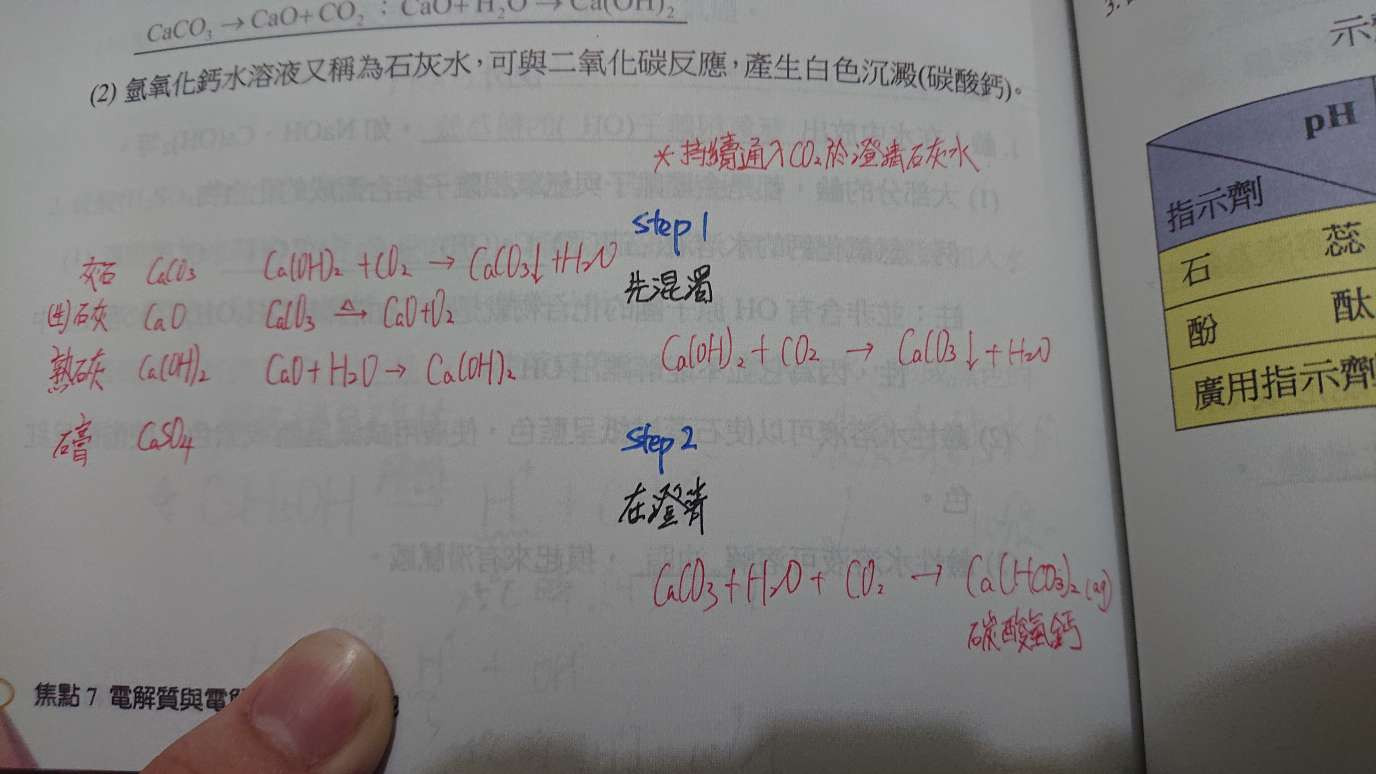 CaCO₃ → CaO + CO₂ ; CaO + H₂O → Ca(OH)₂
(2) 氫氧化鈣水溶液又稱為石灰水，可與二氧化碳反應，產生白色沉澱(碳酸鈣)。
*持續通入CO₂於澄清石灰水
灰石 CaCO₃ Ca(OH)₂ + CO₂ → CaCO₃↓ + H₂O
(生)石灰 CaO CaCO₃ △→ CaO+O₂
熟石灰 Ca(OH)₂ CaO + H₂O → Ca(OH)₂
石膏 CaSO₄
step 1
先混濁
Ca(OH)₂ + CO₂ → CaCO₃↓ + H₂O
step 2
在澄清
CaCO₃ + H₂O + CO₂ → Ca(HCO₃)₂ (aq)
碳酸氫鈣
焦點 7 電解質與電
3.
示
pH
指示劑
石 蕊
酚 酞
廣用指示劑